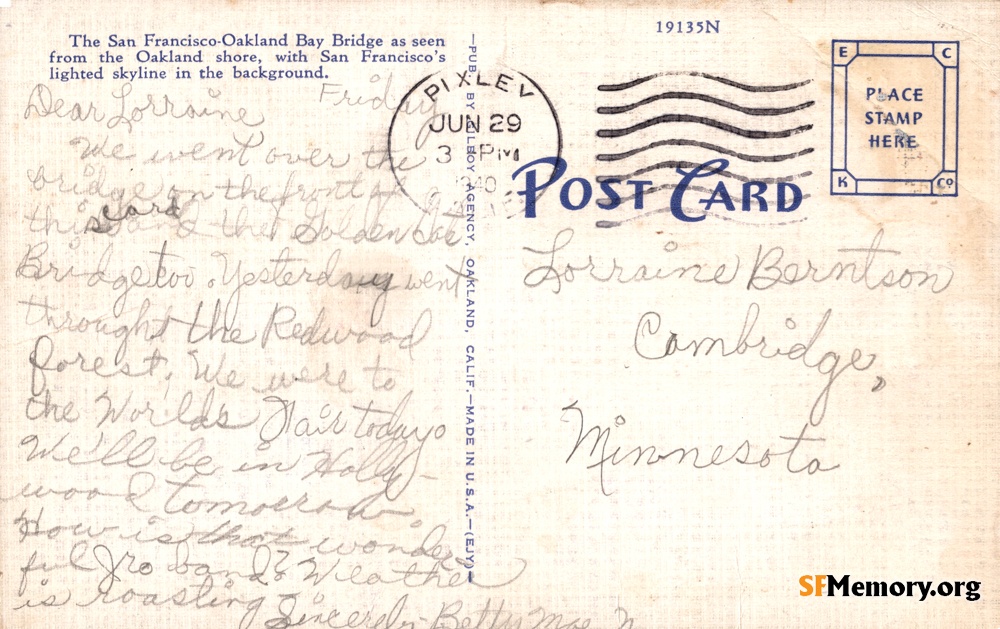 19135N
The San Francisco-Oakland Bay Bridge as seen
from the Oakland shore, with San Francisco's
lighted skyline in the background.
Friday
Dear Lorraine
We went over the
bridge on the front of
this card and the Golden Gate
Bridge too. Yesterday went
throught the Redwood
forest. We were to
the Worlds Fair today.
We'll be in Holly-
wood tomorrow.
How is that wonder
ful Jro band? Weather
is roasting
Sincerely Betty Mae N
—PUB. BY AGENCY, OAKLAND, CALIF.—MADE IN U.S.A.—(EJY)
PIXLEY
JUN 29
3 PM
1940
POST CARD
E C
PLACE
STAMP
HERE
K Co
Lorraine Berntson
Cambridge,
Minnesota
SFMemory.org